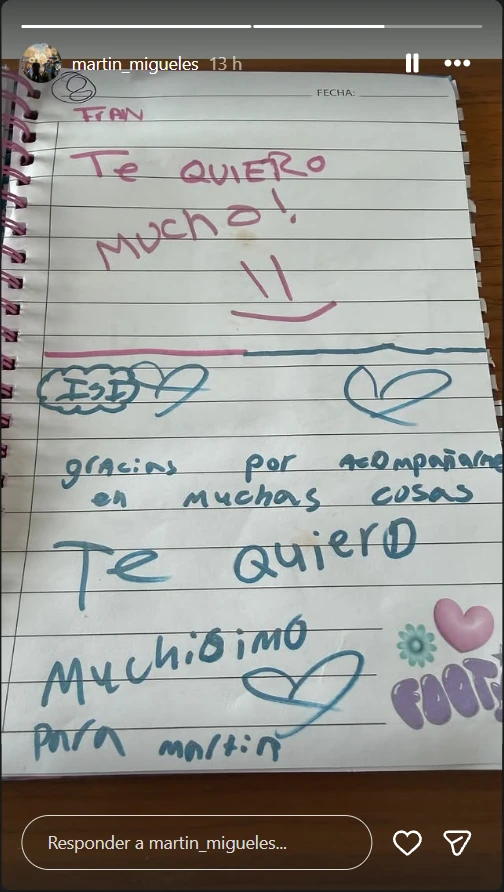 martin_migueles 13 h
FECHA:
FRAN
Te QUIERO
MUCHO!
ISI
gracias por acompañarme
en muchas cosas
Te quierO
MuchiSimO
para martin
FOOT
Responder a martin_migueles...